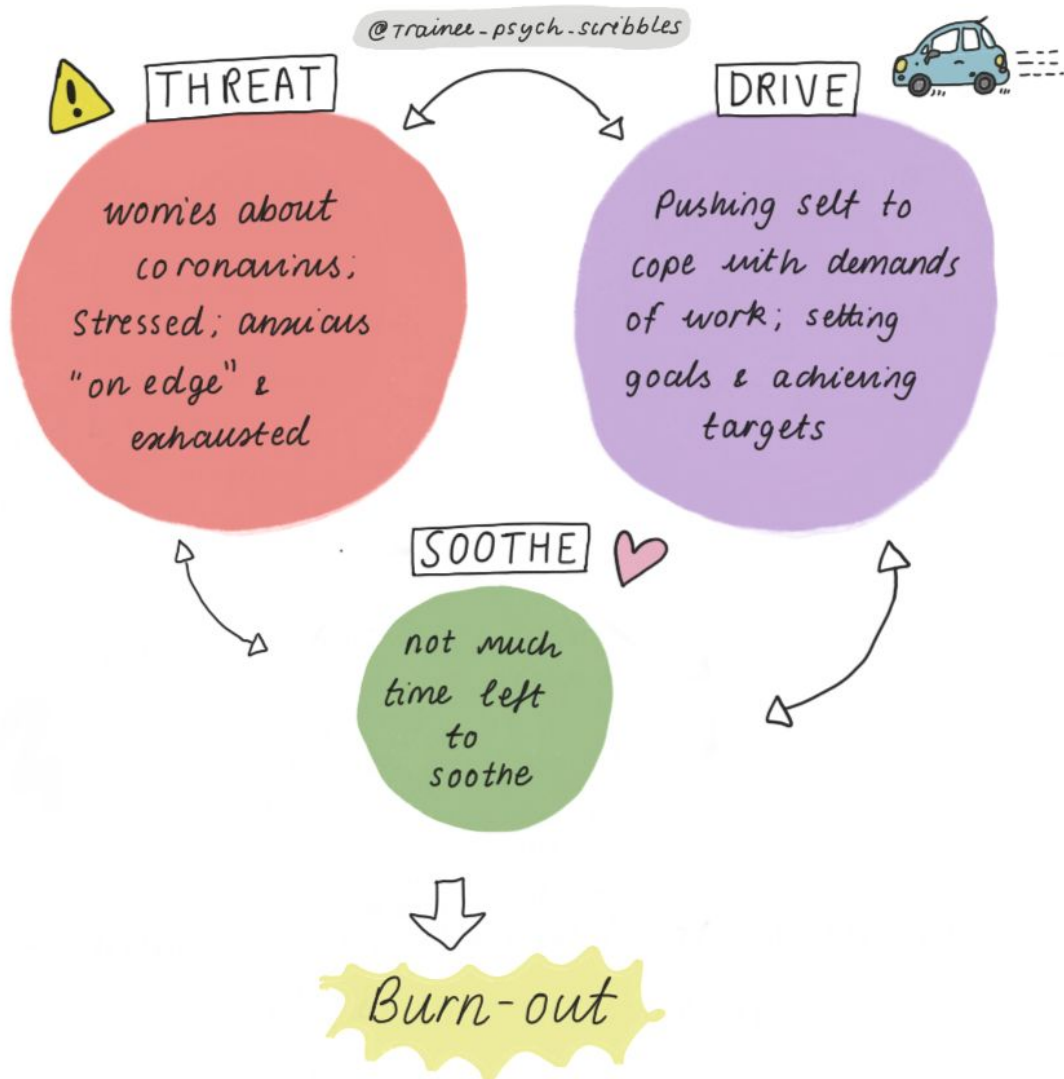 @Trainee_psych_scribbles
THREAT
worries about
coronavirus;
Stressed; anxious
"on edge" &
exhausted
DRIVE
Pushing self to
cope with demands
of work; setting
goals & achieving
targets
SOOTHE
not much
time left
to
soothe
Burn-out